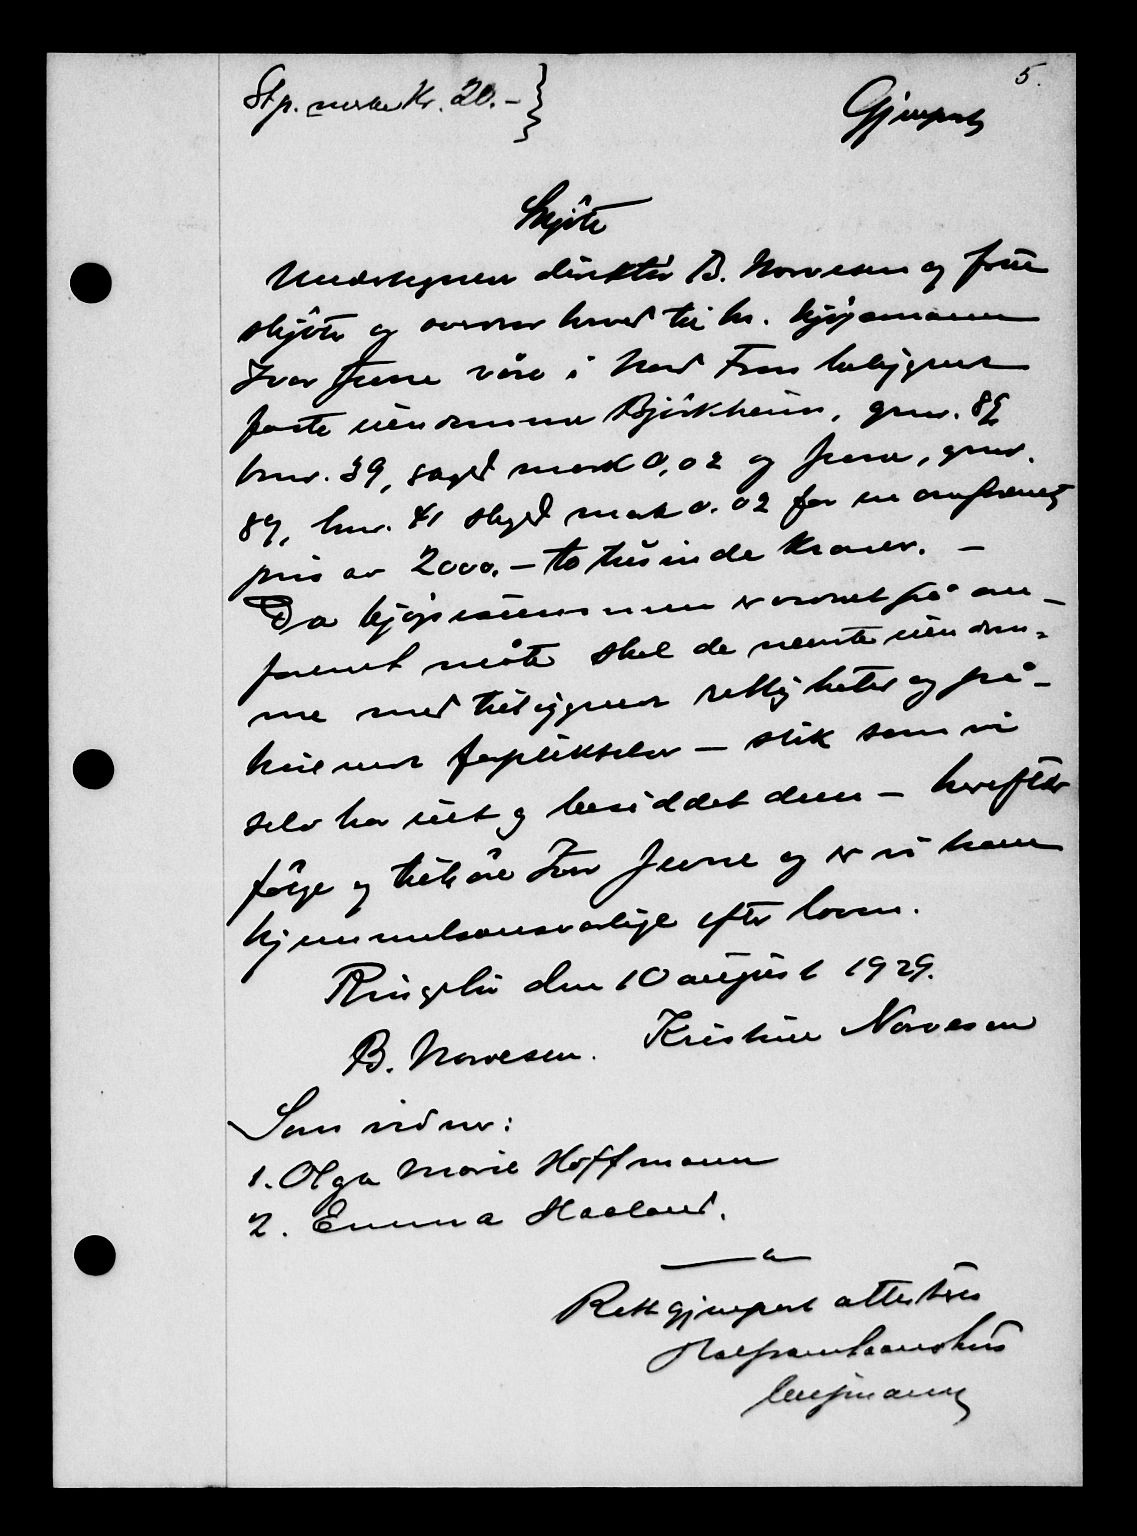 5.
Stp. merke Kr. 20.- Gjenpart
Skjöte
Undertegnede direktör B. Norvesen og frue
skjöter og overdrar herved til hr. kjöpmann
Ivar Jevne våre i Nord Fron beliggende
faste eiendommer Björkheim, gnr. 89,
bnr. 39, skyld mark 0,02 og Jevne, gnr.
89, bnr. 41 skyld mark 0.02 for en omforenet
pris av 2000.- to tusinde Kroner. -
Da kjöpesummen er ordnet på om-
forenet måte skal de nevnte eiendom-
me med tilliggende rettigheter og på-
hvilende forpliktelser - slik som vi
selv har eiet og besiddet dem - herefter
fölge og tilhöre Ivar Jevne og er vi ham
hjemmelsansvarlige efter loven.
Ringebu den 10 august 1929.
B. Norvesen. Kristine Norvesen
Som vidner:
1. Olga Marie Hoffmann
2. Emma Haaland.
Rett gjenpart attesteres